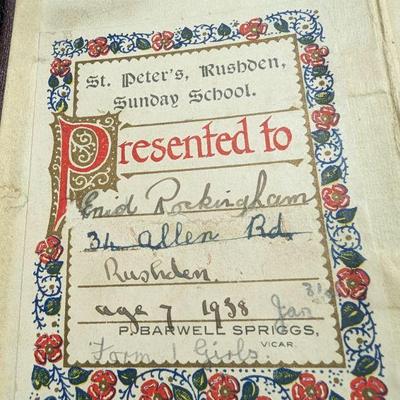 St. Peter's, Rushden,
Sunday School.
Presented to
Enid Rockingham
34 Allen Rd
Rushden.
age 7 1938 Jan
P. BARWELL SPRIGGS,
VICAR.
Form 1 Girls.